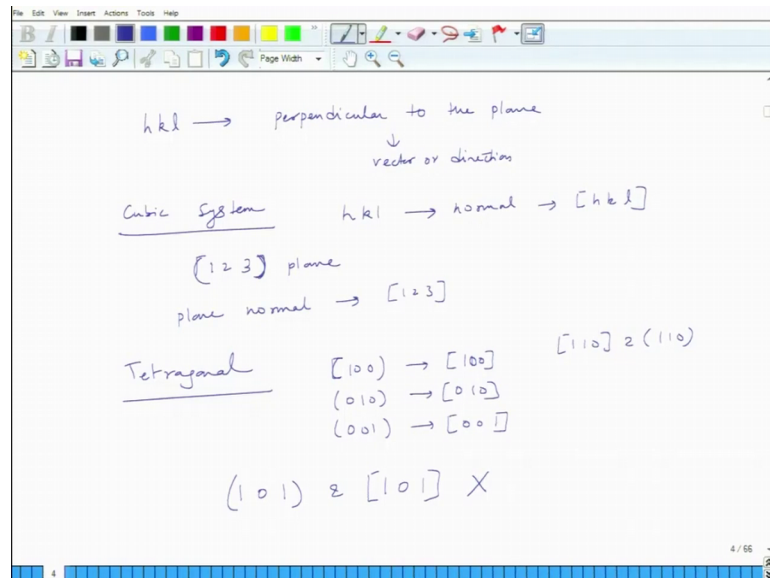 File Edit View Insert Actions Tools Help
B I
Page Width
hkl → perpendicular to the plane
↓
vector or direction
Cubic System hkl → normal → [hkl]
(123) plane
plane normal → [123]
Tetragonal [100) → [100] [110] & (110)
(010) → [010]
(001) → [001]
(101) & [101] X
4 / 66
4